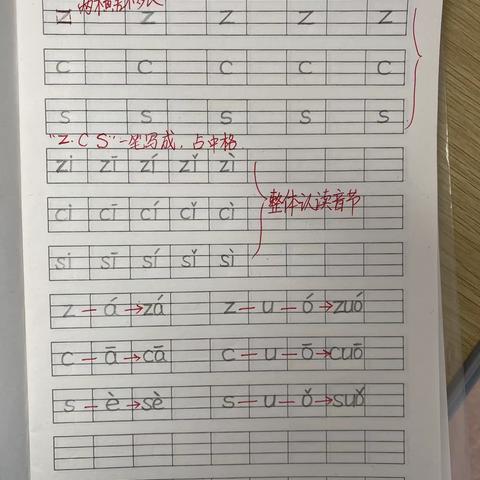 两横一样长
z z z z z
c c c c c
s s s s s
"z. c s"一笔写成，占中格.
zi zī zí zǐ zì
整体认读音节
ci cī cí cǐ cì
si sī sí sǐ sì
z—á→zá z—u—ó→zuó
c—ā→cā c—u—ō→cuō
s—è→sè s—u—ǒ→suǒ